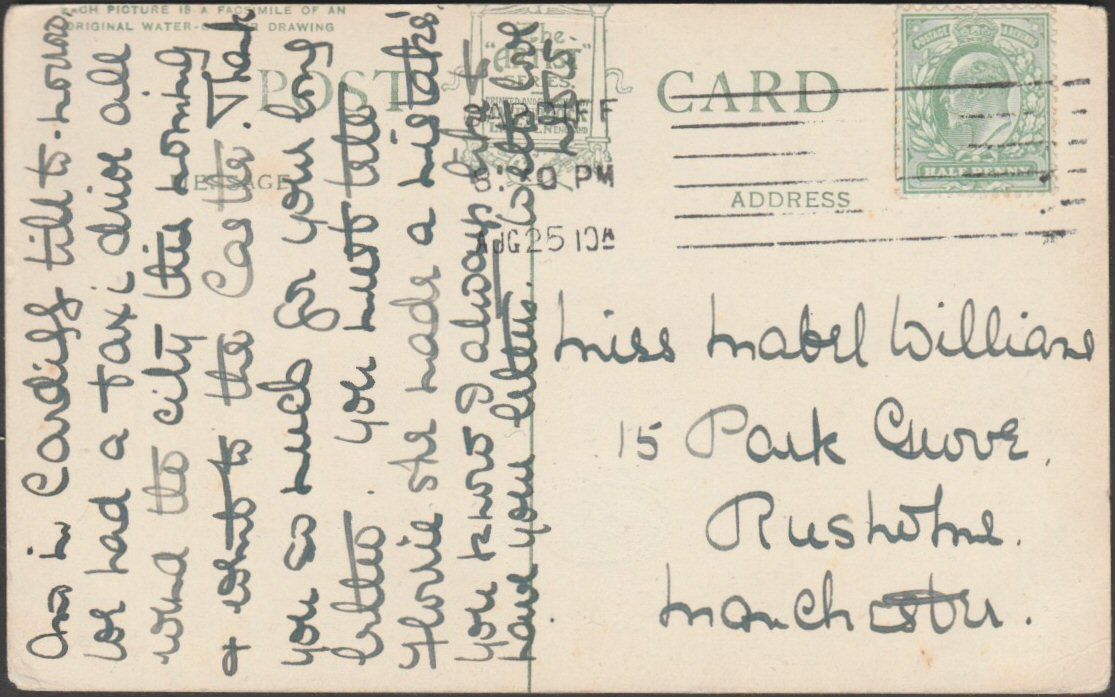 EACH PICTURE IS A FACSIMILE OF AN
ORIGINAL WATER-COLOUR DRAWING
POST CARD
The
"Artist"
SERIES.
ENGLAND
MESSAGE
ADDRESS
HALF PENNY
POSTAGE & REVENUE
CARDIFF
PM
AUG 25 10A
Am in Cardiff till to-morrow.
we had a taxi drive all
round the city this morning
& went to the Castle. Thank
you so much for your long
letter. you must tell
Florrie she made a mistake
you know I always like to
have your letters. With love
Miss Mabel Williams
15 Park Grove.
Rusholme.
Manchester.